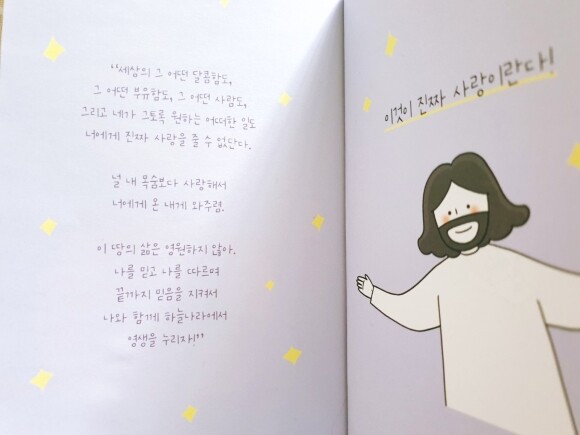 “세상의 그 어떤 달콤함도,
그 어떤 부유함도, 그 어떤 사람도,
그리고 네가 그토록 원하는 어떠한 일도
너에게 진짜 사랑을 줄 수 없단다.
널 내 목숨보다 사랑해서
너에게 온 내게 와주렴.
이 땅의 삶은 영원하지 않아.
나를 믿고 나를 따르며
끝까지 믿음을 지켜서
나와 함께 하늘나라에서
영생을 누리자!”
이것이 진짜 사랑이란다!